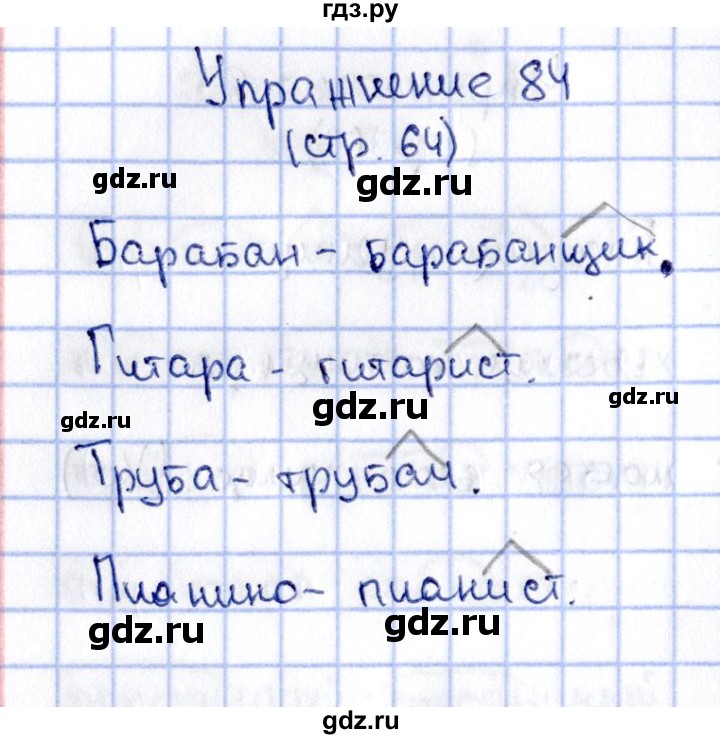 гдз.ру
Упражнение 84
(стр. 64)
gdz.ru
gdz.ru
Барабан - барабанщик.
gdz.ru
gdz.ru
Гитара - гитарист.
gdz.ru
gdz.ru
gdz.ru
Труба - трубач.
Пианино - пианист.
gdz.ru
gdz.ru
gdz.ru